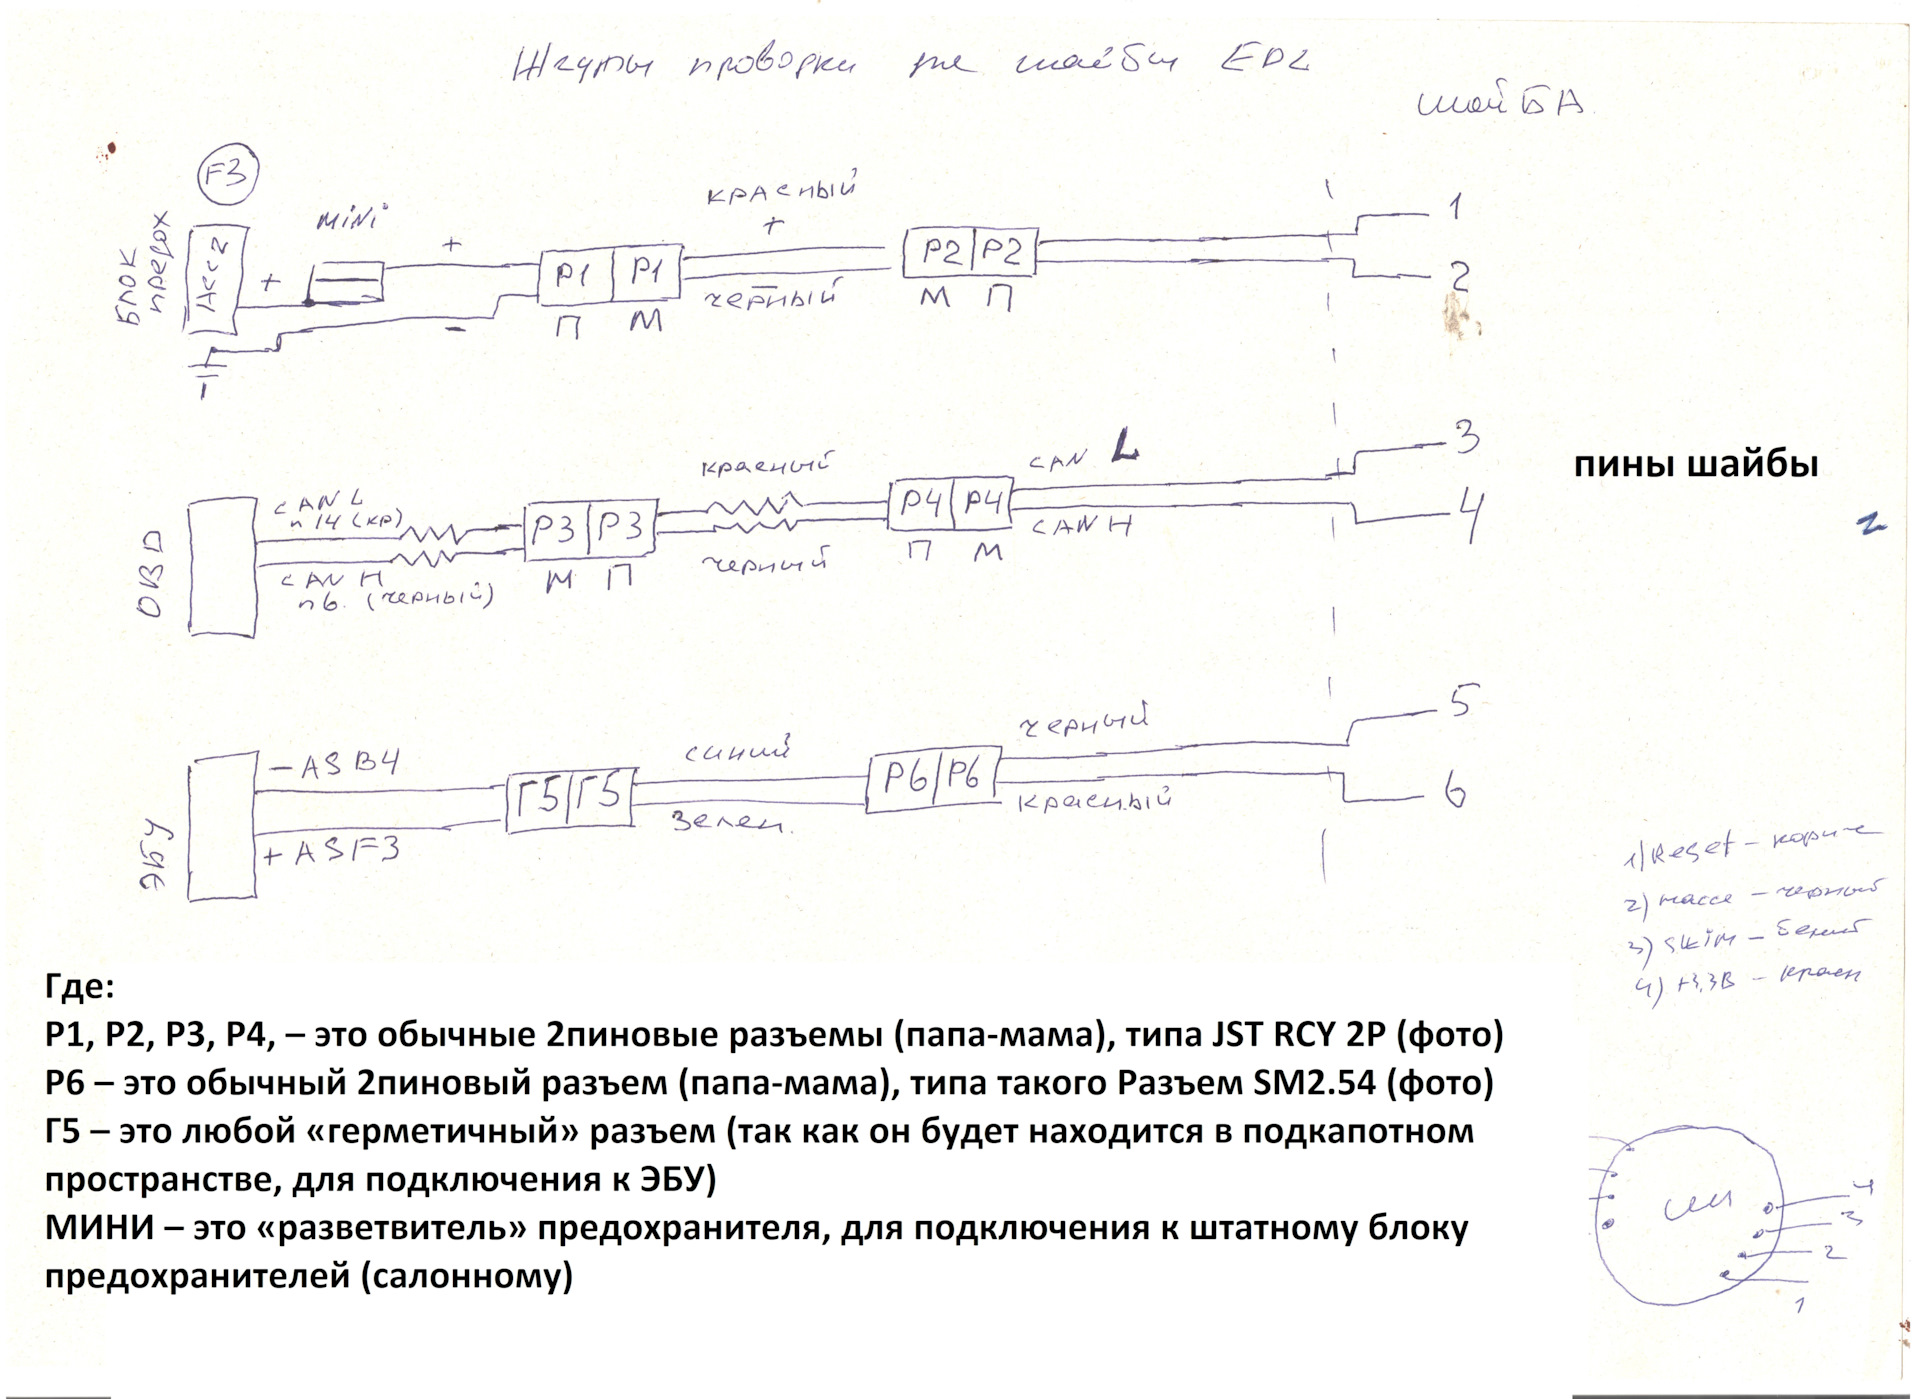 Жгуты проводки на шайбы EDL
шайБА
F3
Блок предох
Acc2
+
MiNi
+
-
P1 P1
П М
красный
+
-
черный
P2 P2
М П
1
2
OBD
CAN L
п 14 (кр)
CAN H
п 6. (черный)
P3 P3
М П
красный
черный
P4 P4
П М
CAN L
CAN H
3
4
пины шайбы
ЭБУ
- ASB4
+ ASF3
Г5 Г5
синий
Зелен.
P6 P6
черный
красный
5
6
1) Reset - коричн
2) масса - черный
3) SWim - белый
4) +3,3В - красн
Где:
Р1, Р2, Р3, Р4, – это обычные 2пиновые разъемы (папа-мама), типа JST RCY 2P (фото)
Р6 – это обычный 2пиновый разъем (папа-мама), типа такого Разъем SM2.54 (фото)
Г5 – это любой «герметичный» разъем (так как он будет находится в подкапотном
пространстве, для подключения к ЭБУ)
МИНИ – это «разветвитель» предохранителя, для подключения к штатному блоку
предохранителей (салонному)
4
3
2
1